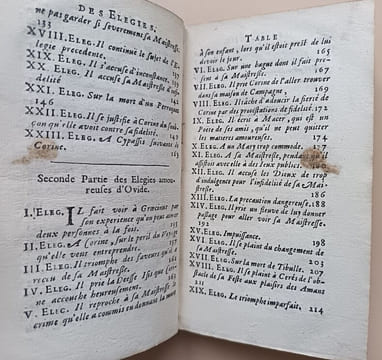 DES ELEGIES,
ne pas garder si severement sa Maistresse.
133
XVIII. ELEG. Il continuë le sujet de l'E-
legie precedente,
XIX. ELEG. Il s'accuse d'inconstance,
XX. ELEG. Il accuse sa Maistresse d'in-
fidelité
XXI. ELEG. Sur la mort d'un Perroquet
146
XXII. ELEG. Il se justifie à Corine du
çon qu'elle avoit contre sa fidelité.
XXIII. ELEG. A Cypassis suivante de
Corine. 163
Seconde Partie des Elegies amou-
reuses d'Ovide.
I. ELEG. IL fait voir à Grecinus par
son experience qu'on peut aimer
deux personnes à la fois.
II. ELEG. A Corine, sur le peril du Voyage
qu'elle veut entreprendre.
III. ELEG. Il triomphe des faveurs qu'il a
de sa Maistresse.
IV. ELEG. Il prie la Deesse Isis que Corine
ne accouche heureusement.
V. ELEG. Il reproche à sa Maistresse le
crime qu'elle a commis en donnant la mort
TABLE
à son enfant, lors qu'il estoit prest de lui
devoir le jour. 165
VI. ELEG. Sur une bague dont il fait pre-
sent à sa Maistresse. 167
VII. ELEG. Il prie Corine de l'aller trouver
dans sa maison de Campagne, 169
VIII. ELEG. Il tâche d'adoucir la fierté de
Corine par des protestations de fidelité. 171
IX. ELEG. Il écrit à Macer, qui est un
Poëte de ses amis, qu'il ne peut quitter
les matieres amoureuses. 174
X. ELEG. A un Mary trop commode. 176
XI. ELEG. A sa Maistresse, pendant qu'il
assistoit avec elle à des Jeux publics. 182
XII. ELEG. Il accuse les Dieux de trop
d'indulgence pour l'infidelité de sa Mai-
stresse. 186
XIII. ELEG. La precaution dangereuse. 188
XIV. ELEG. Il prie un fleuve de lui donner
passage pour aller voir sa Maistresse.
193
XV. ELEG. Impuissance. 198
XVI. ELEG. Il se plaint du changement de
sa Maistresse.
XVII. ELEG. Sur la mort de Tibulle.
XVIII. ELEG. Il se plaint à Cerés de l'ob-
stacle de sa Feste aux plaisirs des Amans
211
XIX. ELEG. Le triomphe imparfait. 214